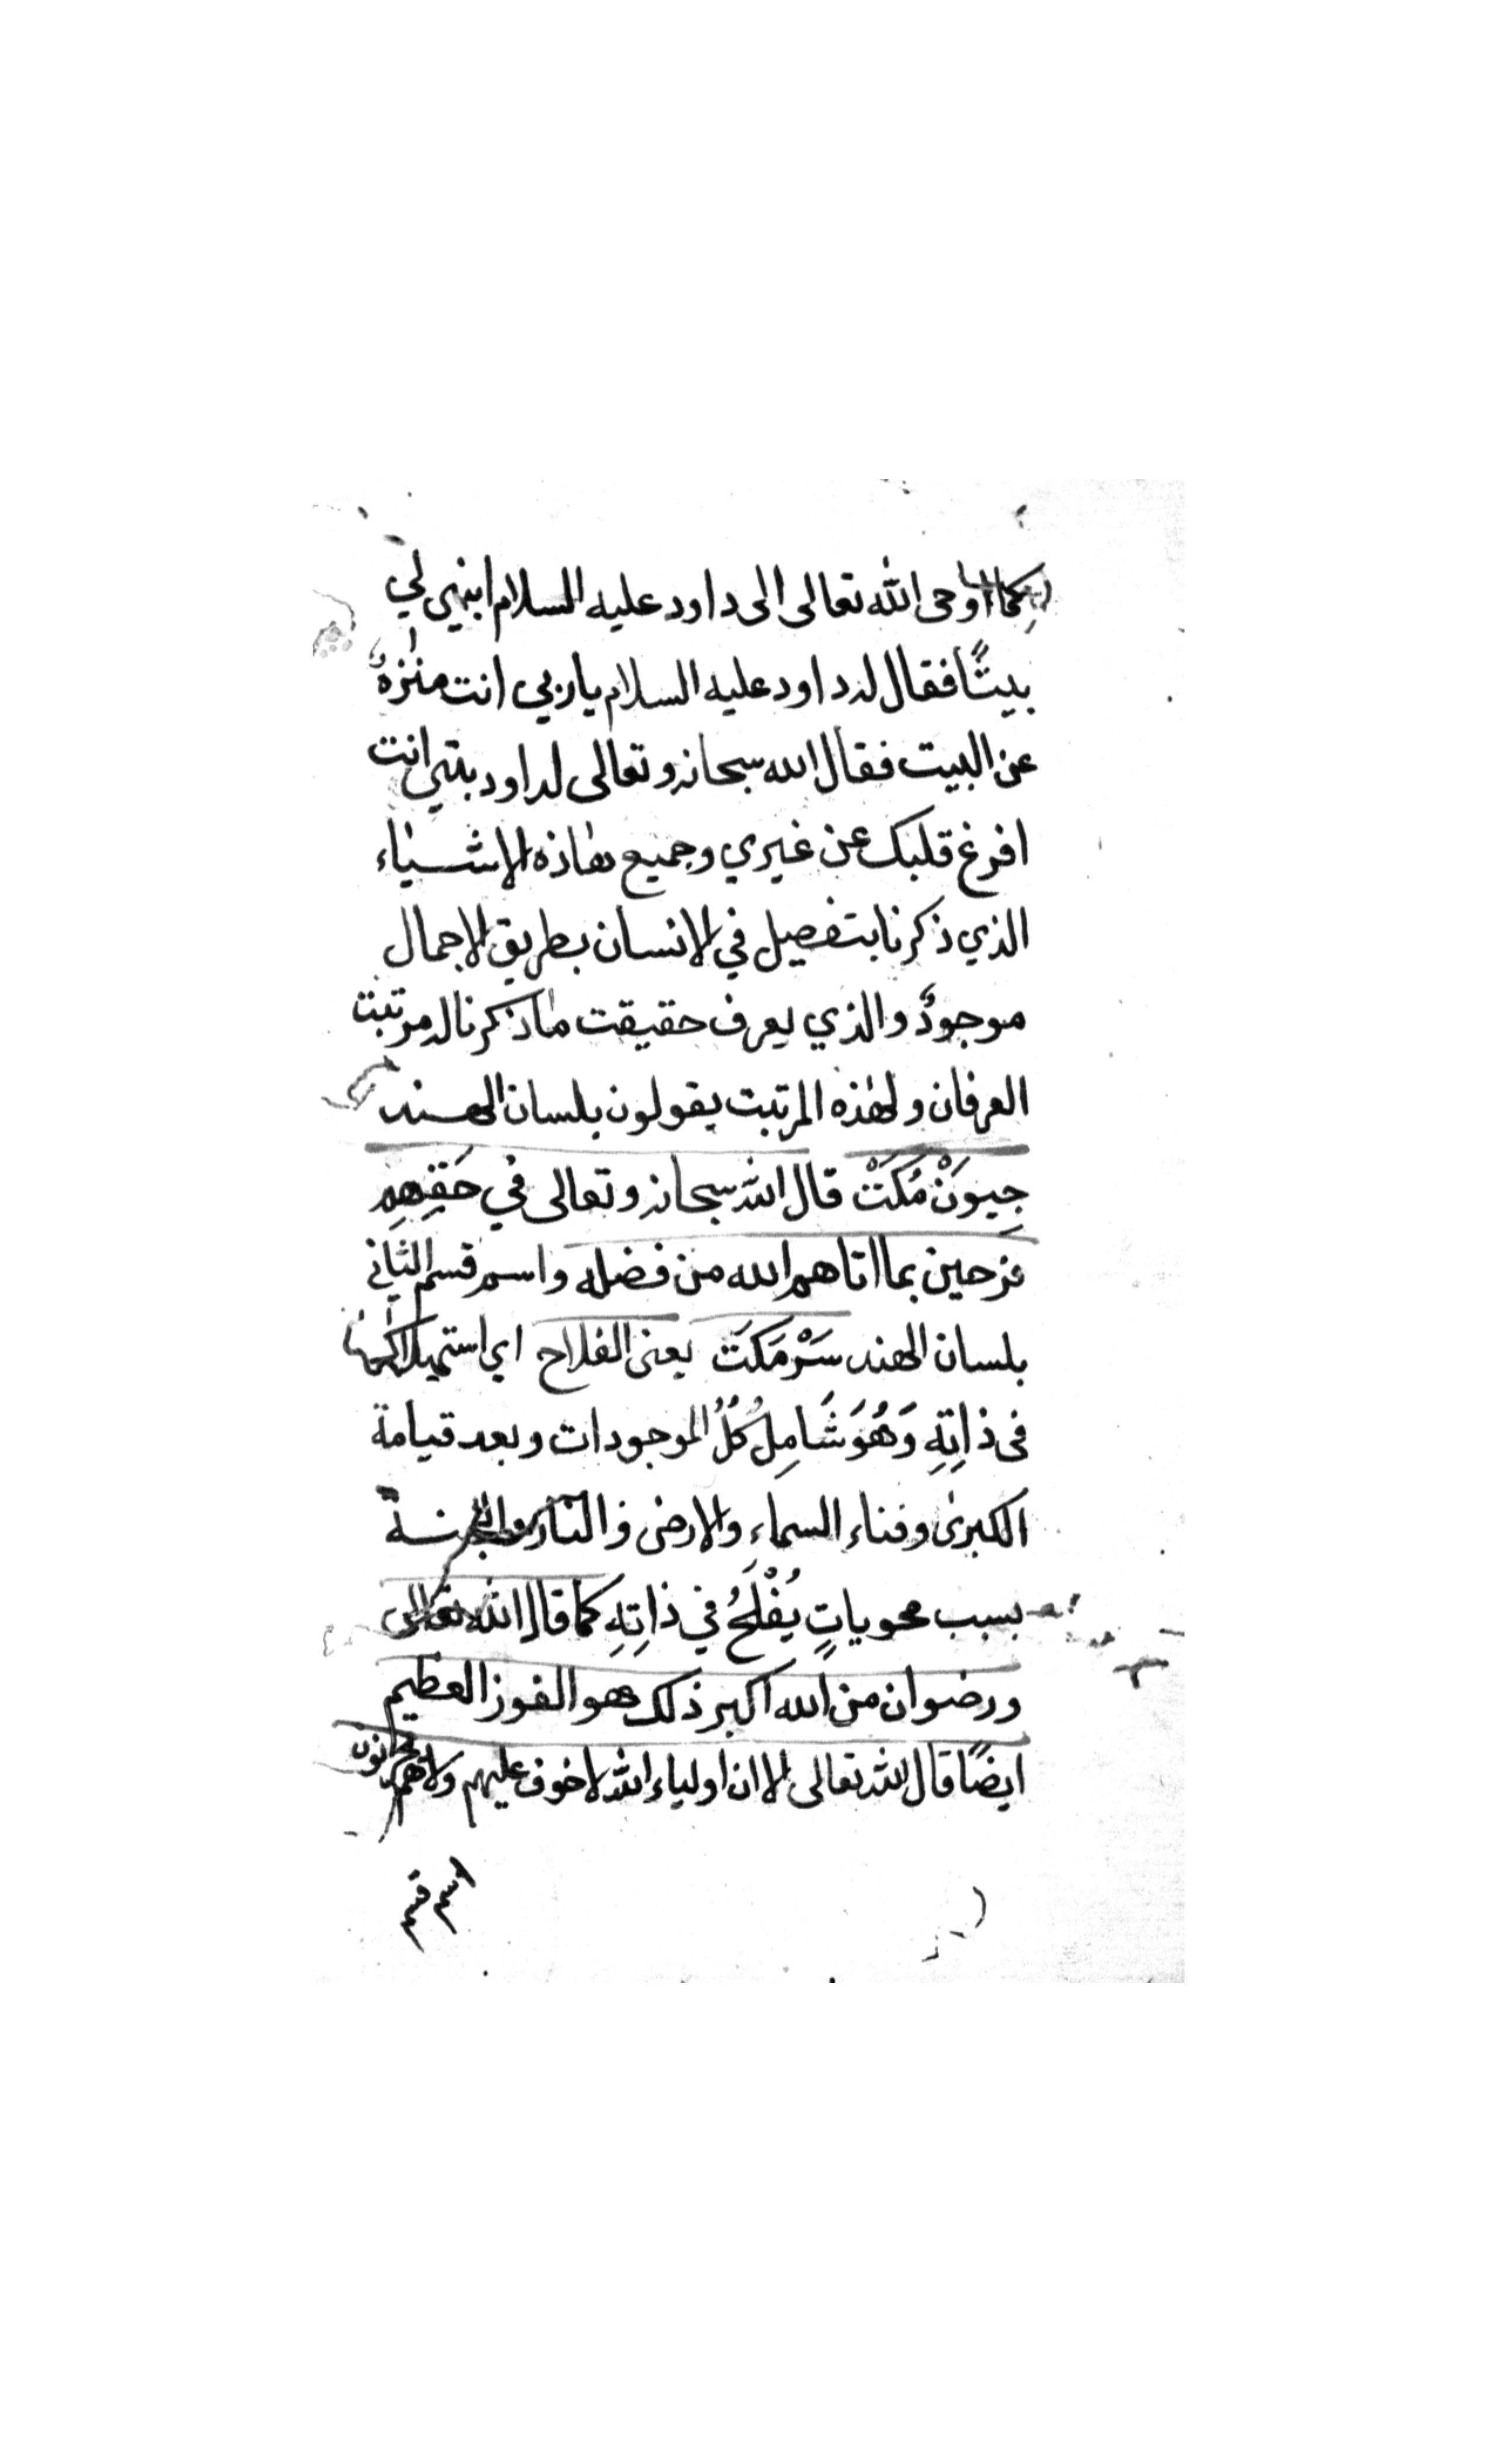 كما اوحى الله تعالى الى داود عليه السلام ابنيي لي
بيتًا فقال له داود عليه السلام ياربي انت منزهٌ
عن البيت فقال الله سبحانه وتعالى لداود بيتي انت
افرغ قلبك عن غيري وجميع هاذه الاشياء
الذي ذكرنا بتفصيل في الانسان بطريق الاجمال
موجودٌ والذي يعرف حقيقت ماذكرنا له مرتبت
العرفان ولهٰذه المرتبت يقولون بلسان الهند
جِيوَنْ مُكَتْ قال الله سبحانه وتعالى في حَقِهِم
فرحين بما اتاهم الله من فضله واسم قسم الثاني
بلسان الهند سَرْمَكَتَ يعنى الفلاح اي
فى ذاتِهِ وَهُوَ شَامِلُ كُلُّ الموجودات وبعد قيامة
الكبرىٰ وفناء السماء والارض و النار والجنـة
بسبب محوياتٍ يُفْلَحُ في ذاتِهِ كما قال الله تعالى
ورضوان من الله اكبر ذلك هو الفوز العظيم
ايضًا قال الله تعالى الا ان اولياء الله لاخوف عليهم ولاهم يحزنون
اسم قسم